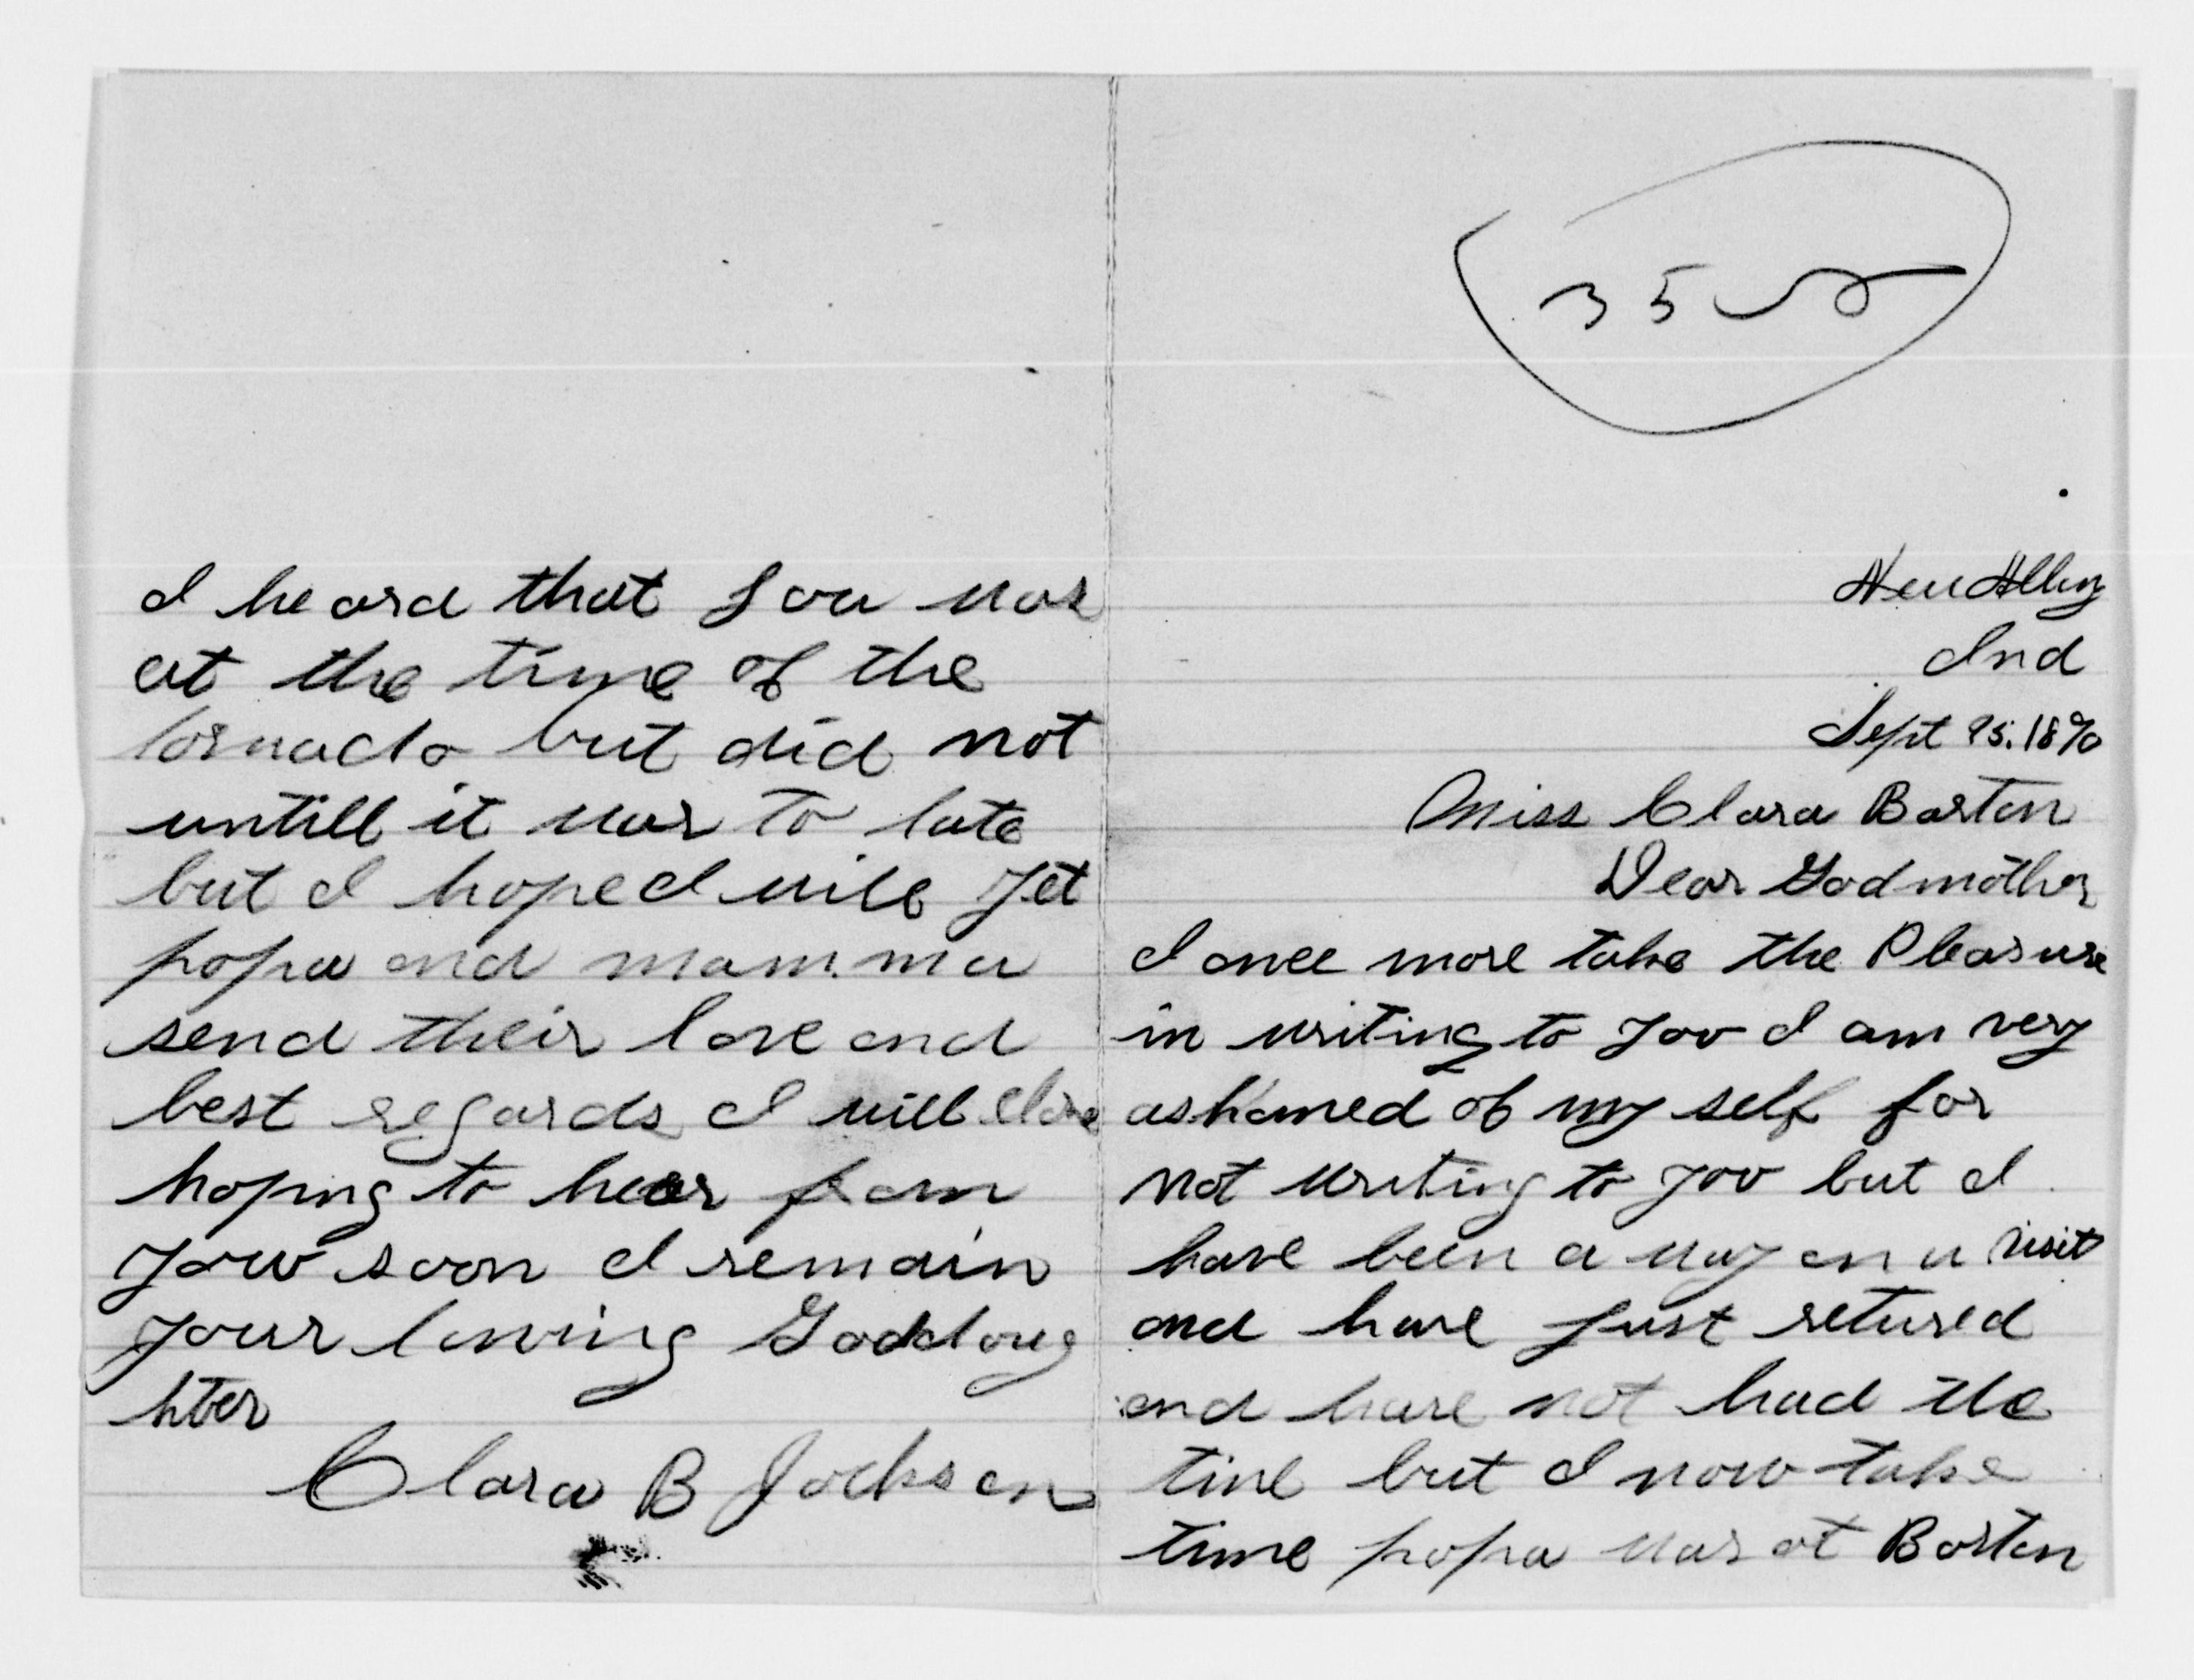 New Albny
Ind
Sept 25. 1890
Miss Clara Barton
Dear Godmother
I once more take the Pleasure
in writing to you I am very
ashamed of my self for
not writing to you but I
have been a way on a visit
and have just retured
and have not had the
time but I now take
time popa was at Boston
I heard that you was
at the time of the
tornado but did not
untill it was to late
but I hoped will yet
popa and mamma
send their love and
best regards I will close
hoping to hear from
you soon I remain
your loving Goddaug
hter
Clara B Jackson